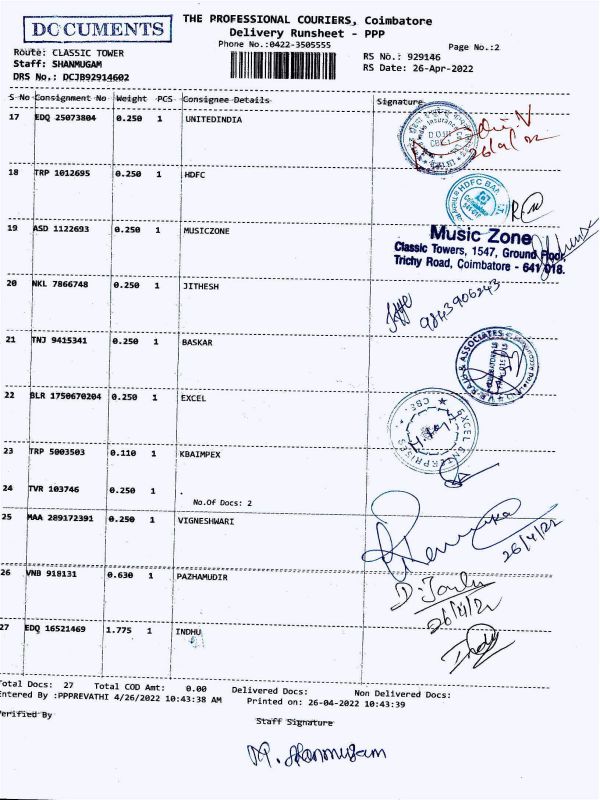 DOCUMENTS
THE PROFESSIONAL COURIERS, Coimbatore
Delivery Runsheet - PPP
Phone No.:0422-3505555
Page No.:2
Route: CLASSIC TOWER
Staff: SHANMUGAM
DRS No.: DCJB92914602
RS No.: 929146
RS Date: 26-Apr-2022
S No Consignment No Weight PCS Consignee Details Signature
17 EDQ 25073804 0.250 1 UNITEDINDIA
26/4/22
18 TRP 1012695 0.250 1 HDFC
HDFC BANK
19 ASD 1122693 0.250 1 MUSICZONE
Music Zone
Classic Towers, 1547, Ground Floor,
Trichy Road, Coimbatore - 641 018.
20 NKL 7866748 0.250 1 JITHESH
9843906243
21 TNJ 9415341 0.250 1 BASKAR
& ASSOCIATES
22 BLR 1750670204 0.250 1 EXCEL
EXCEL ENTERPRISES CBE
23 TRP 5003503 0.110 1 KBAIMPEX
24 TVR 103746 0.250 1 .
No.Of Docs: 2
25 MAA 289172391 0.250 1 VIGNESHWARI
26/4/22
26 VNB 918131 0.630 1 PAZHAMUDIR
26/4/22
27 EDQ 16521469 1.775 1 INDHU
Indu
Total Docs: 27 Total COD Amt: 0.00 Delivered Docs: Non Delivered Docs:
Entered By :PPPREVATHI 4/26/2022 10:43:38 AM Printed on: 26-04-2022 10:43:39
Verified By
Staff Signature
M. Shanmugam